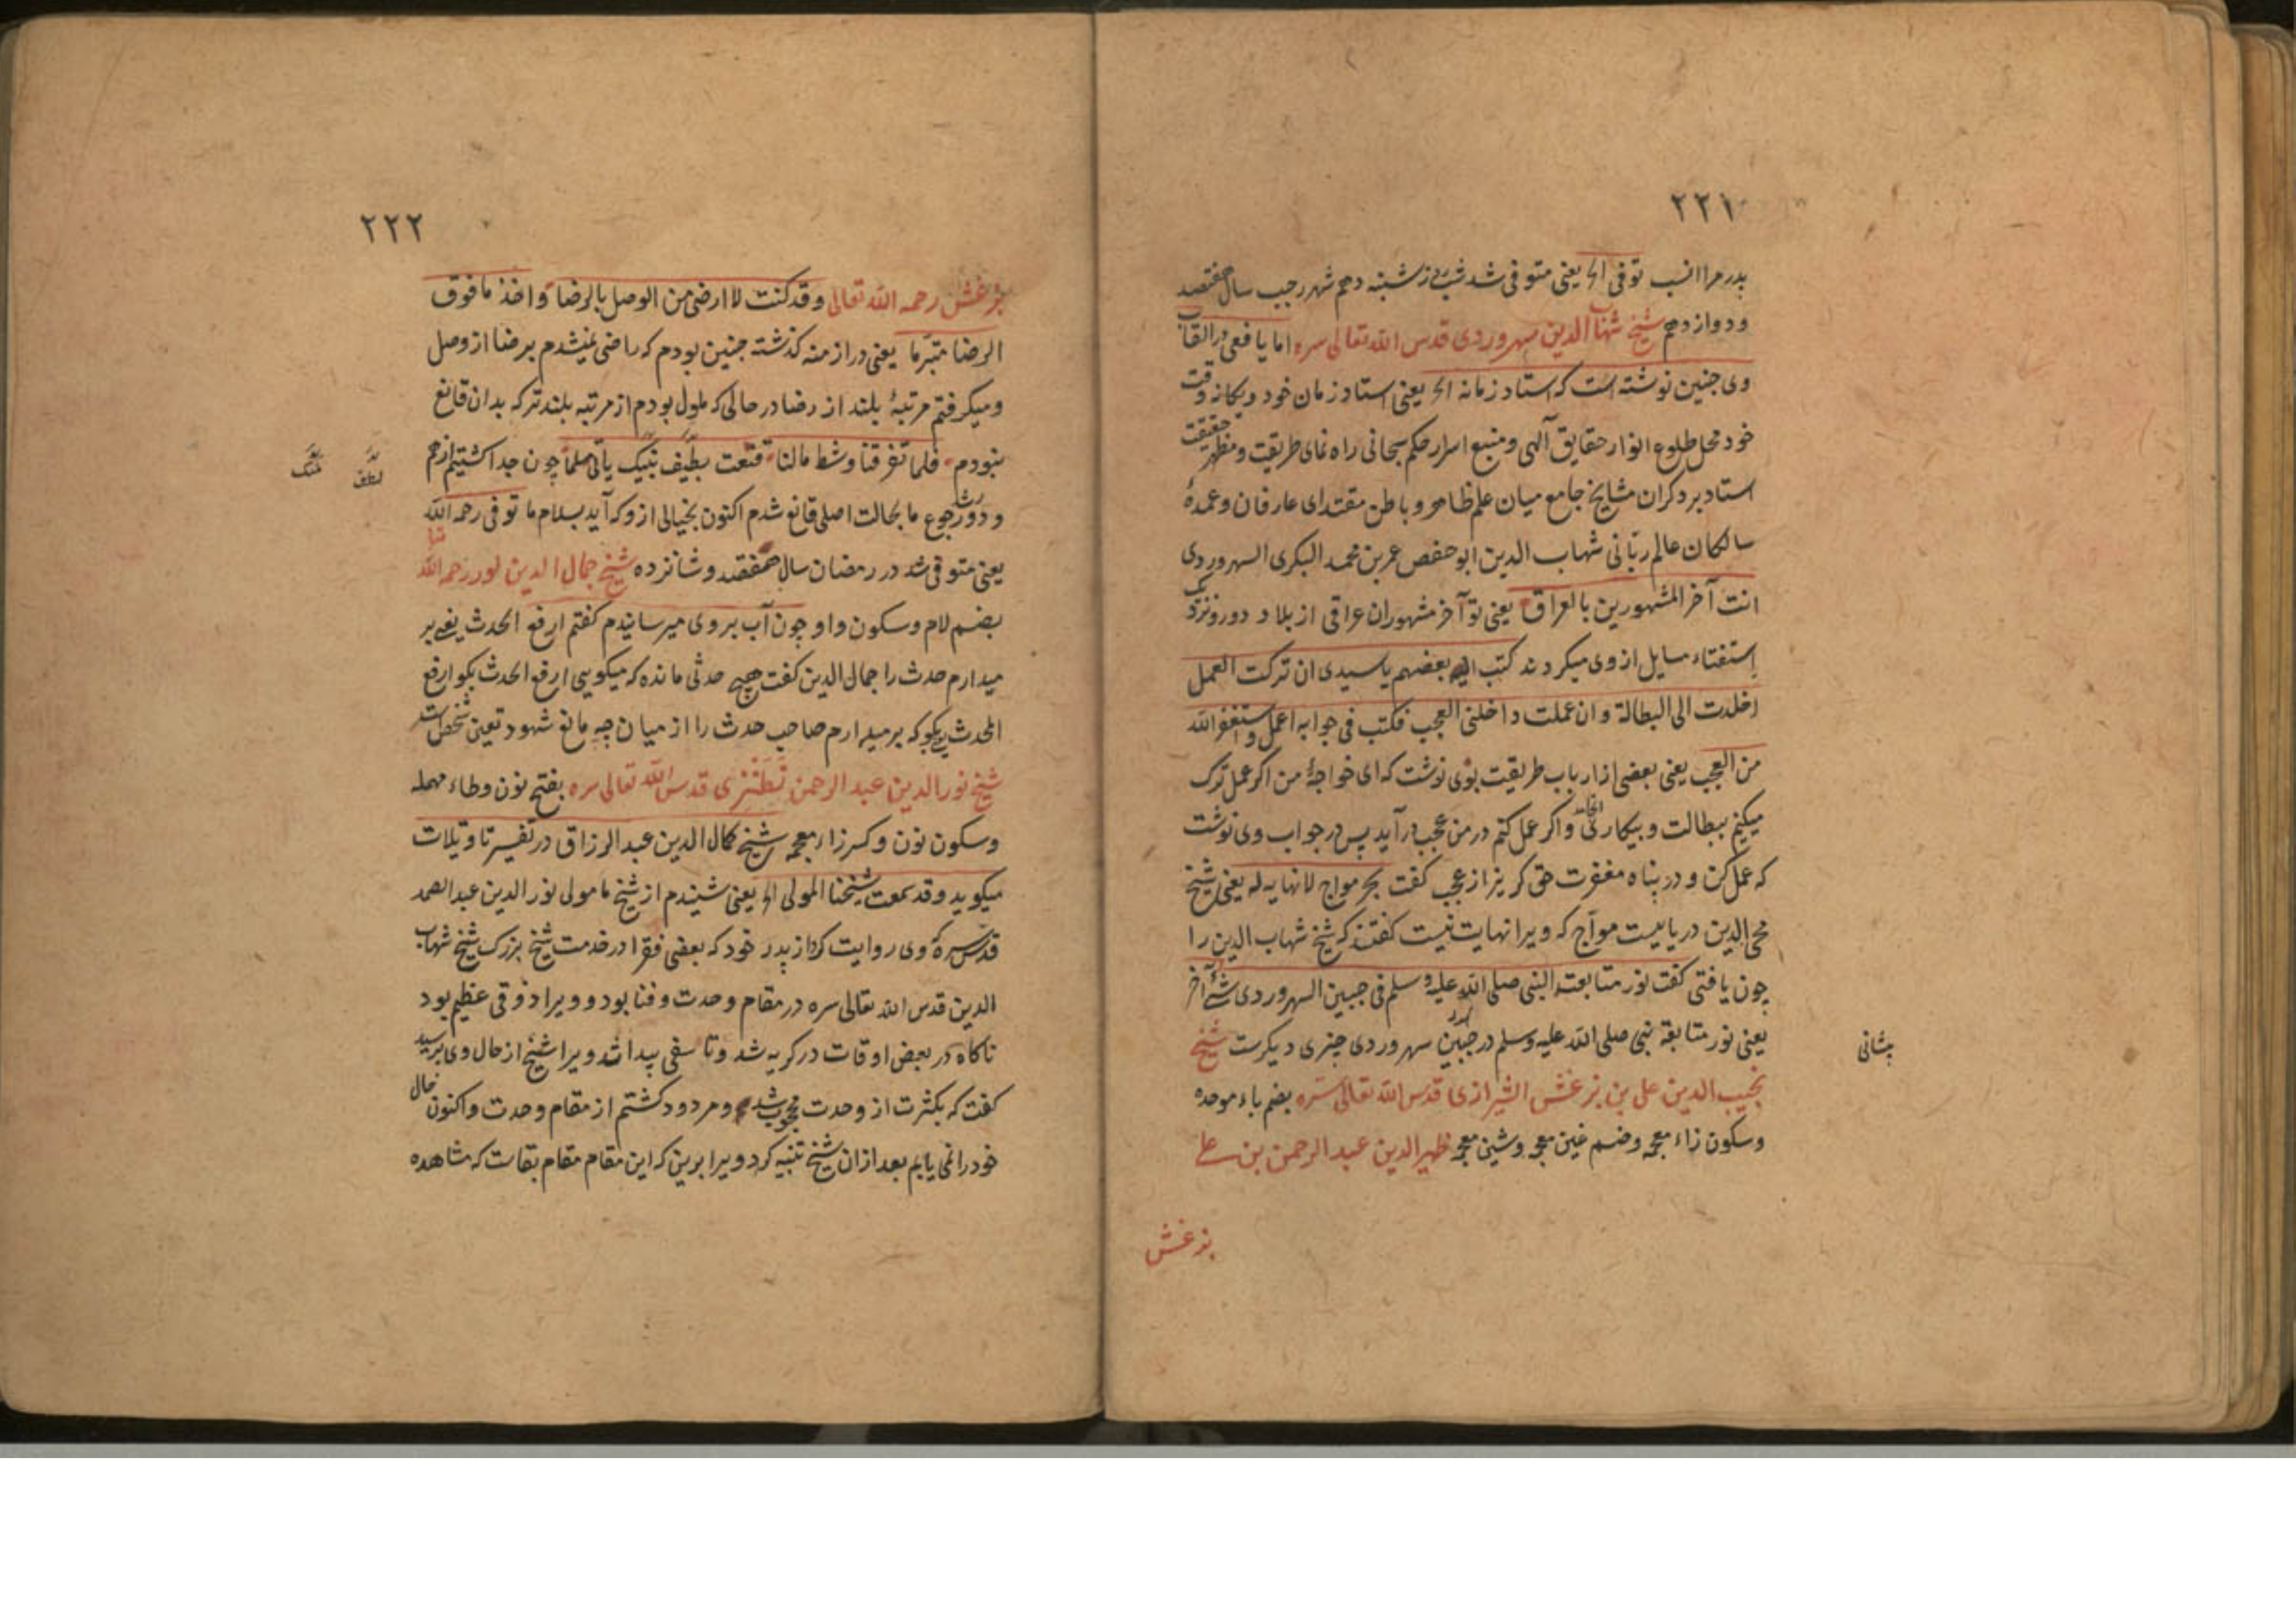 ۲۲۱
پدر مرا انسب توفی الخ یعنی متوفی شد شب شنبه دهم شهر رجب سال هفتصد
ودوازدهم شیخ شهاب الدین سهروردی قدس الله تعالی سره اما یافعی در القاب
وی جنین نوشته است که استاد زمانه الخ یعنی استاد زمان خود ویکانه وقت
خود محل طلوع انوار حقایق آلهی و منبع اسرار حکم سبحانی راه نمای طریقت ومظهر حقیقت
استاد بزرکران مشایخ جامع میان علم ظاهر و باطن مقتدای عارفان وعمدهٔ
سالکان عالم ربّانی شهاب الدین ابو حفص عمر بن محمد البکری السهروردی
انت آخر المشهورین بالعراق یعنی تو آخر مشهوران عراقی از بلاد دور ونزدیک
استفتاء مسایل از وی میکردند کتب الیه بعضهم یا سیدی ان ترکت العمل
اخلدت الی البطالة وان عملت داخلنی العجب فکتب فی جوابه اعمل واستغفر الله
من العجب یعنی بعضی از ارباب طریقت بوی نوشت که ای خواجهٔ من اکر عمل ترک
میکنم ببطالت و بیکاری واکر عمل کنم در من عجب در آید پس در جواب وی نوشت
که عمل کن و در پناه مغفرت حق کریز از عجب کفت بحر مواج لا نهایه له یعنی شیخ
محی الدین دریاییست موآج که ویرا نهایت نیست کفتند که شیخ شهاب الدین را
چون یافتی کفت نور متابعة النبی صلی الله علیه وسلم فی جبین السهروردی شیٔ آخر
یعنی نور متابعة نبی صلی الله علیه وسلم در جبین سهروردی جیزی دیکرست شیخ
پیشانی
نجیب الدین علی بن بزغش الشیرازی قدس الله تعالی سره بضم باء موحده
وسکون زاء معجمه وضم غین معجمه وشین معجمه ظهیر الدین عبد الرحمن بن علی
بزغش
۲۲۲
بزغش رحمه الله تعالی وقد کنت لا ارضی من الوصل بالرضا واخذ ما فوق
الرضا متبرّما یعنی در ازمنه کذشته جنین بودم که راضی نمیشدم برضا از وصل
ومیکرفتم مرتبهٔ بلند از رضا در حالی که ملول بودم از مرتبه بلندتر که بدان قانع
نبودم فلما تفرقنا وشط مالنا قنعت بطیف نبیک یأتی مسلما چون جدا کشتیم از هم
و دور شد رجوع ما بحالت اصلی قانع شدم اکنون بخیالی از و که آید بسلام ما توفی رحمه الله
یعنی متوفی شد در رمضان سال هفتصد وشانزده شیخ جمال الدین لور رحمه الله تعا
بضم لام وسکون واو چون آب بروی میرسانیدم کفتم ارفع الحدث یعنی بر
میدارم حدث را جمال الدین کفت چه حدثی مانده که میکویی ارفع الحدث بکو ارفع
المحدث بکو که بر میدارم صاحب حدث را از میان چه مانع شهود تعین شخص است
شیخ نور الدین عبد الرحمن نطنزی قدس الله تعالی سره بفتح نون وطاء مهمله
وسکون نون وکسر زاء معجمه شیخ کمال الدین عبد الرزاق در تفسیر تاویلات
میکوید وقد سمعت شیخنا المولی الخ یعنی شنیدم از شیخ ما مولی نور الدین عبد الصمد
قدس سره که وی روایت کرد از پدر خود که بعضی فقرا در خدمت شیخ بزرک شیخ شهاب
الدین قدس الله تعالی سره در مقام وحدت وفنا بود و ویرا ذوقی عظیم بود
ناکاه در بعض اوقات در کریه شد وتاسفی پیدا شد ویرا شیخ از حال وی پرسید
کفت که بکثرت از وحدت محجوب شدم ومردود کشتم از مقام وحدت واکنون حال
خود را نمی یابم بعد از ان شیخ تنبیه کرد ویرا برین که این مقام مقام بقاست که مشاهده